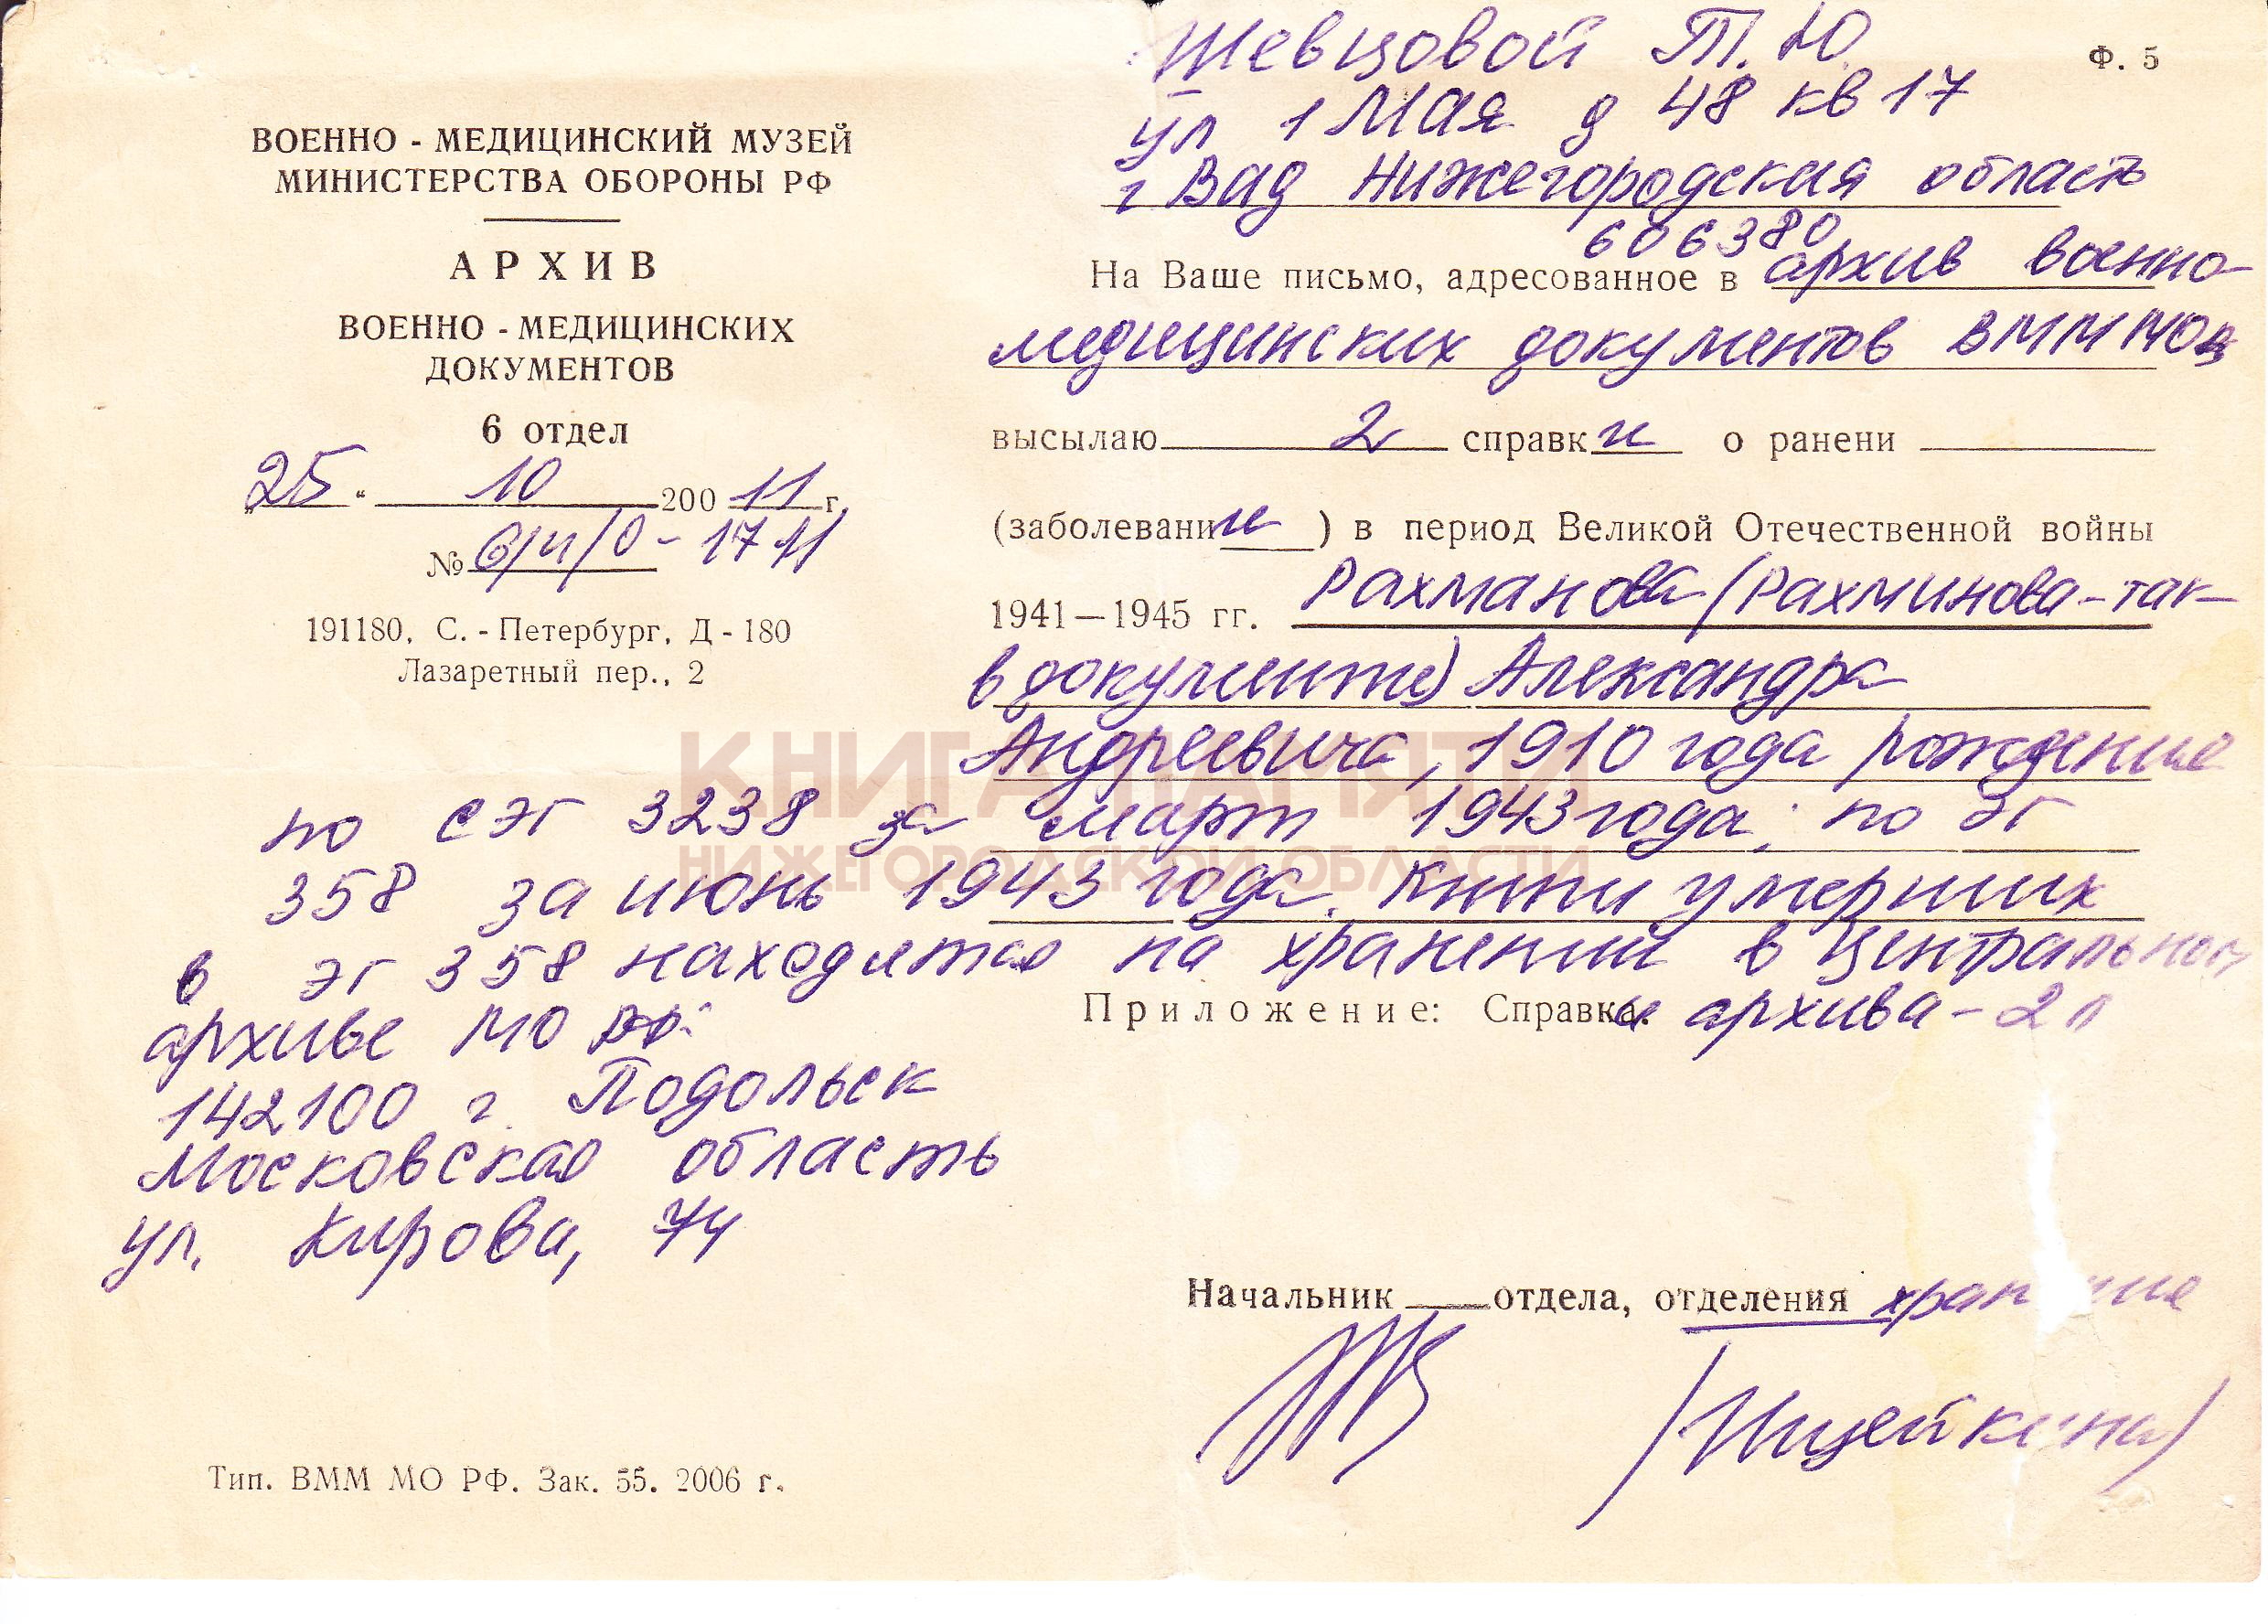 Ф. 5
ВОЕННО - МЕДИЦИНСКИЙ МУЗЕЙ
МИНИСТЕРСТВА ОБОРОНЫ РФ
АРХИВ
ВОЕННО - МЕДИЦИНСКИХ
ДОКУМЕНТОВ
6 отдел
„25“ 10 200 11 г.
№ 6/4/0 - 1711
191180, С. - Петербург, Д - 180
Лазаретный пер., 2
Шевцовой Т. Ю
ул 1 Мая д 48 кв 17
г Вад Нижегородская область
606380
На Ваше письмо, адресованное в архив военно-
медицинских документов ВММ МО
высылаю 2 справки о ранени
(заболевании) в период Великой Отечественной войны
1941—1945 гг. Рахманова (Рахминова - так
в документе) Александра
Андреевича, 1910 года рождения
по СЭГ 3238 за март 1943 года; по ЭГ
358 за июнь 1943 года. Книги умерших
в ЭГ 358 находятся на хранении в Центральном
архиве МО РФ:
142100 г. Подольск
Московская область
ул. Кирова, 74
Приложение: Справки архива - 2 л
Начальник отдела, отделения хранения
Тип. ВММ МО РФ. Зак. 55. 2006 г.
КНИГА ПАМЯТИ
НИЖЕГОРОДСКОЙ ОБЛАСТИ